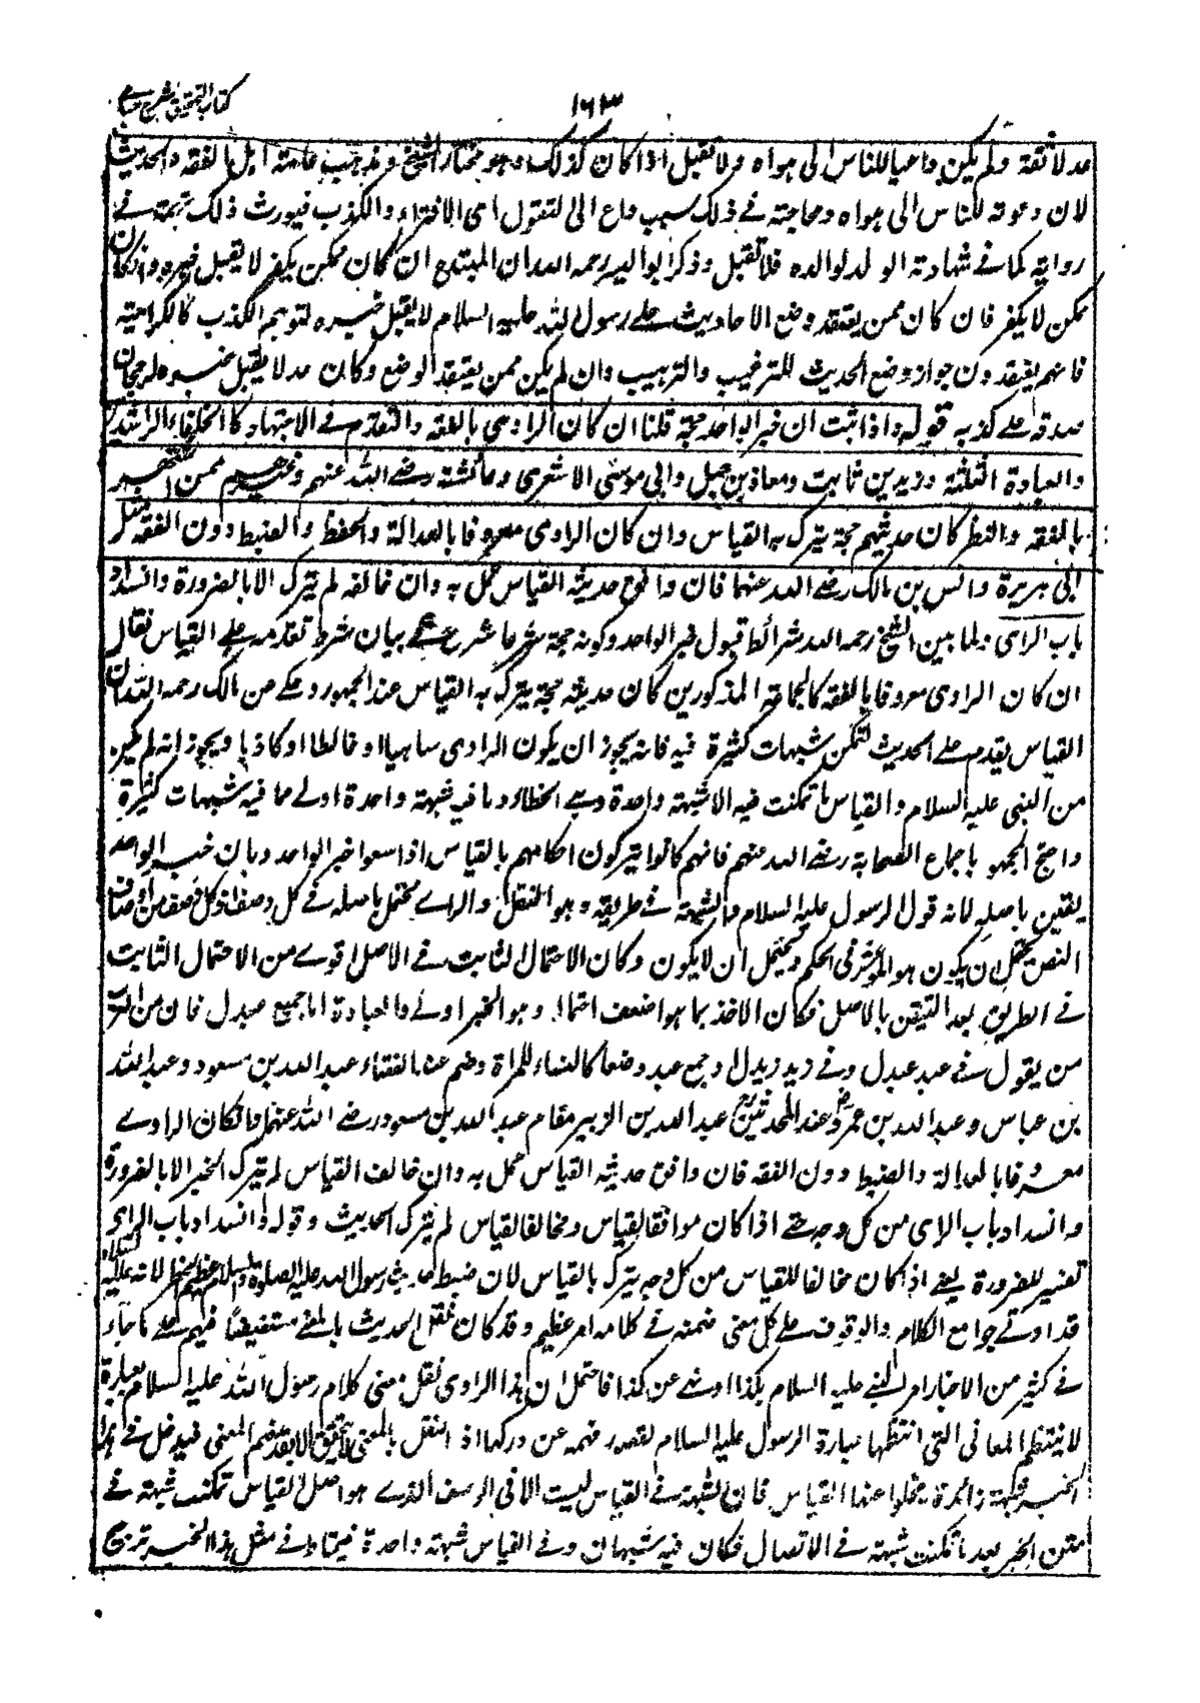 كتاب التحقيق شرح حسامي
١٦٣
عدلا ثقة ولم يكن داعيا للناس الى هواه ولا تقبل اذا كان كذلك وهو مختار الشيخ ومذهب عامة اهل الفقه والحديث
لان دعوته للناس الى هواه ومحاجته في ذلك سبب داع الى التقول اى الافتراء والكذب فيورث ذلك تهمة في
روايته كما في شهادة الولد لوالده فلا تقبل وذكر ابو اليسر رحمه الله ان المبتدع ان كان ممكن يكفر لا يقبل خبره وان كان
ممكن لا يكفر فان كان ممن يعتقد وضع الاحاديث على رسول الله عليه السلام لا يقبل خبره لتوهم الكذب كالكرامية
فانهم يعتقدون جواز وضع الحديث للترغيب والترهيب وان لم يكن ممن يعتقد الوضع وكان عدلا يقبل خبره لرجحان
صدقه على كذبه قوله واذا ثبت ان خبر الواحد حجة قلنا ان كان الراوى بالفقه والتقدم في الاجتهاد كالخلفاء الراشدين
والعبادلة الثلثة وزيد بن ثابت ومعاذ بن جبل وابي موسى الاشعرى وعائشة رضي الله عنهم وغيرهم ممن اشتهر
بالفقه والنظر كان حديثهم حجة يترك به القياس وان كان الراوى معروفا بالعدالة والحفظ والضبط دون الفقه مثل
ابى هريرة وانس بن مالك رضي الله عنهما فان وافق حديثه القياس عمل به وان خالفه لم يترك الا بالضرورة وانسداد
باب الراى ولما بين الشيخ رحمه الله شرائط قبول خبر الواحد وكونه حجة شرعا شرع في بيان شرط تقدمه على القياس فقال
ان كان الراوى معروفا بالفقه كالجماعة المذكورين كان حديثه حجة يترك به القياس عند الجمهور وحكي عن مالك رحمه الله ان
القياس يقدم على الحديث لتمكن شبهات كثيرة فيه فانه يجوز ان يكون الراوى ساهيا او غالطا او كاذبا ويجوز انه لم يكن
من النبى عليه السلام والقياس ما تمكنت فيه الا شبهة واحدة وهي الخطاء وما فيه شبهة واحدة اولى مما فيه شبهات كثيرة
واحتج الجمهور باجماع الصحابة رضي الله عنهم فانهم كانوا يتركون احكامهم بالقياس اذا سمعوا خبر الواحد وبان خبر الواحد
يقين باصله لانه قول الرسول عليه السلام والشبهة في طريقه وهو النقل والراى محتمل باصله في كل وصف اذ كل وصف من اوصاف
النص يحتمل ان يكون هو المؤثر في الحكم ويحتمل ان لا يكون وكان الاحتمال الثابت في الاصل اقوى من الاحتمال الثابت
في الطريق بعد التيقن بالاصل فكان الاخذ بما هو اضعف احتمالا وهو الخبر اولى والعبادلة اما جمع عبدل فان من العرب
من يقول في عبد عبدل وفي زيد زيدل او جمع عبد وضعا كالنساء للمراة وهم عند الفقهاء عبد الله بن مسعود وعبد الله
بن عباس وعبد الله بن عمر وعند المحدثين عبد الله بن الزبير مقام عبد الله بن مسعود رضي الله عنهم فان كان الراوي
معروفا بالعدالة والضبط دون الفقه فان وافق حديثه القياس عمل به وان خالف القياس لم يترك الخبر الا بالضرورة
وانسداد باب الراى من كل وجه حتى اذا كان موافقا لقياس ومخالفا لقياس لم يترك الحديث وقوله وانسداد باب الراى
تفسير للضرورة يعني اذا كان مخالفا للقياس من كل وجه يترك بالقياس لان ضبط حديث رسول الله عليه الصلوة والسلام عظيم الخطر لانه عليه السلام
قد اوتي جوامع الكلام والوقوف على كل معنى ضمنه في كلامه امر عظيم وقد كان نقل الحديث بالمعنى مستفيضا فيهم على ما جاء
في كثير من الاخبار امر النبي عليه السلام بكذا او نهى عن كذا فاحتمل ان هذا الراوى نقل معنى كلام رسول الله عليه السلام بعبارة
لا ينتظم المعانى التى انتظمها عبارة الرسول عليه السلام لقصور فهمه عن دركها اذ النقل بالمعنى لا يتحقق الا بقدر فهم المعنى فيدخل في هذا
الخبر شبهة زائدة يخلوا عنها القياس فان الشبهة في القياس ليست الا في الوصف الذي هو اصل القياس وتمكنت شبهة في
متن الخبر بعد ما تمكنت شبهة في الاتصال فكان فيه شبهتان وفي القياس شبهة واحدة فيحتاط في مثل هذا الخبر ترجيح